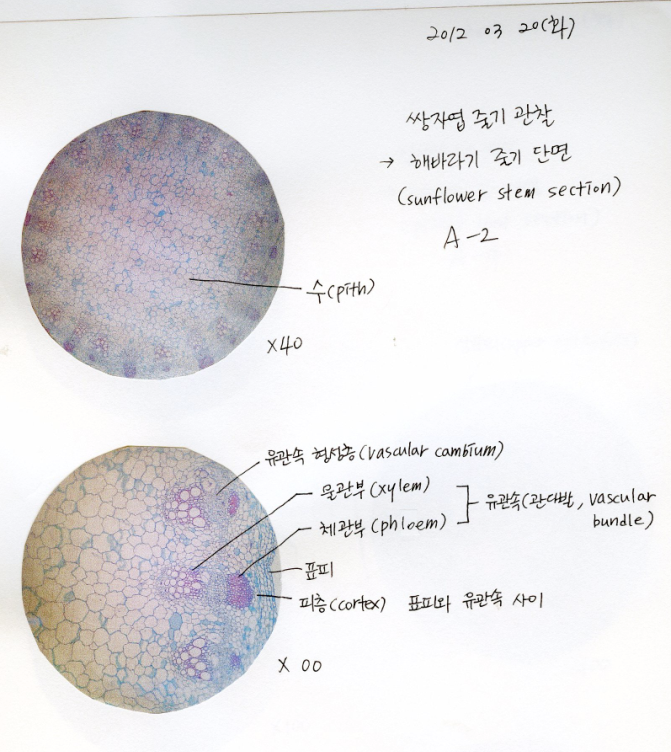 2012 03 20(화)
쌍자엽 줄기 관찰
→ 해바라기 줄기 단면
(sunflower stem section)
A-2
수(pith)
×40
유관속 형성층(vascular cambium)
물관부(xylem)
체관부(phloem)
유관속(관다발, vascular
bundle)
표피
피층(cortex) 표피와 유관속 사이
× 00